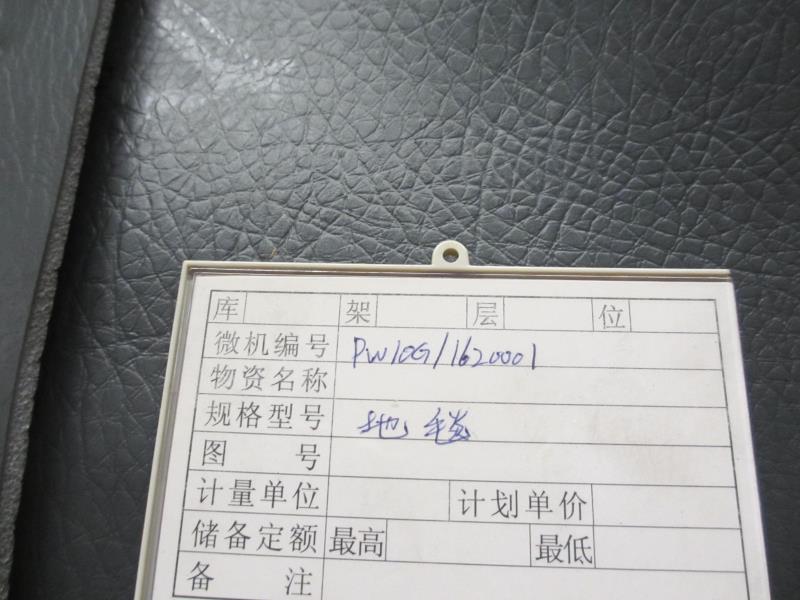 库 架 层 位
微机编号 PW10G/1620001
物资名称
规格型号 地毯
图号
计量单位 计划单价
储备定额 最高 最低
备注